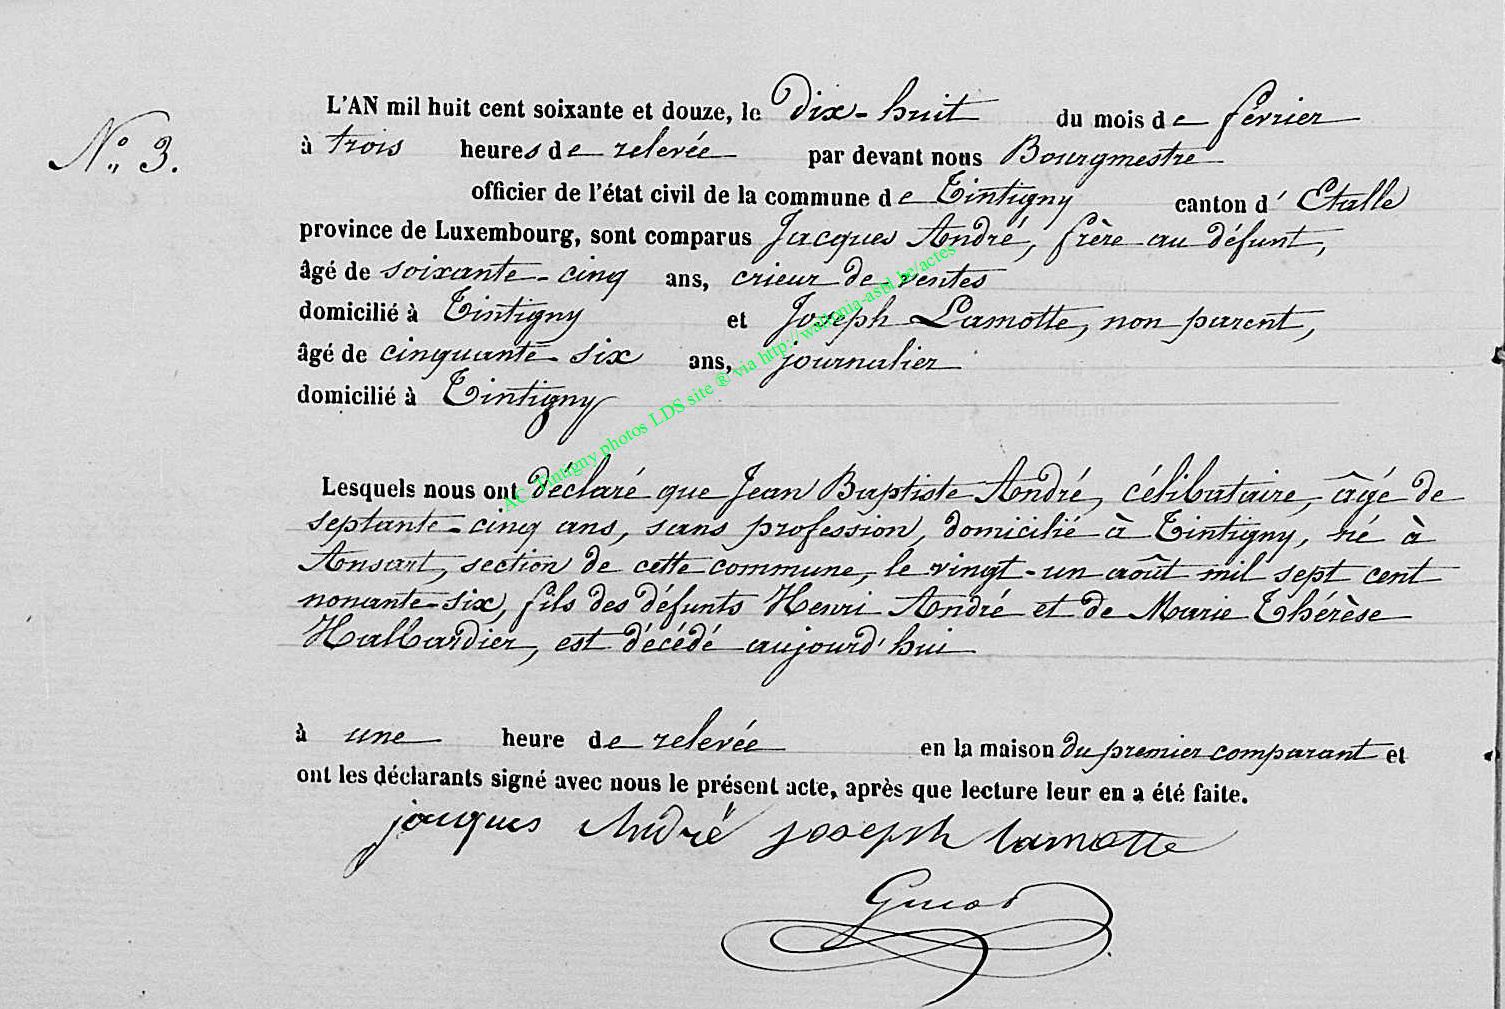 L'AN mil huit cent soixante et douze, le dix-huit du mois de février
N° 3.
à trois heures de relevée par devant nous Bourgmestre
officier de l'état civil de la commune de Tintigny canton d'Etalle
province de Luxembourg, sont comparus Jacques André, frère au défunt,
âgé de soixante-cinq ans, crieur de ventes
domicilié à Tintigny et Joseph Lamotte, non parent,
âgé de cinquante-six ans, journalier
domicilié à Tintigny
AC Tintigny photos LDS site ® via http://wallonia-asbl.be/actes
Lesquels nous ont déclaré que Jean Baptiste André, célibataire, âgé de
septante-cinq ans, sans profession, domicilié à Tintigny, né à
Ansart, section de cette commune, le vingt-un août mil sept cent
nonante-six, fils des défunts Henri André et de Marie Thérèse
Halbardier, est décédé aujourd'hui
à une heure de relevée en la maison du premier comparant et
ont les déclarants signé avec nous le présent acte, après que lecture leur en a été faite.
jacques André joseph lamotte